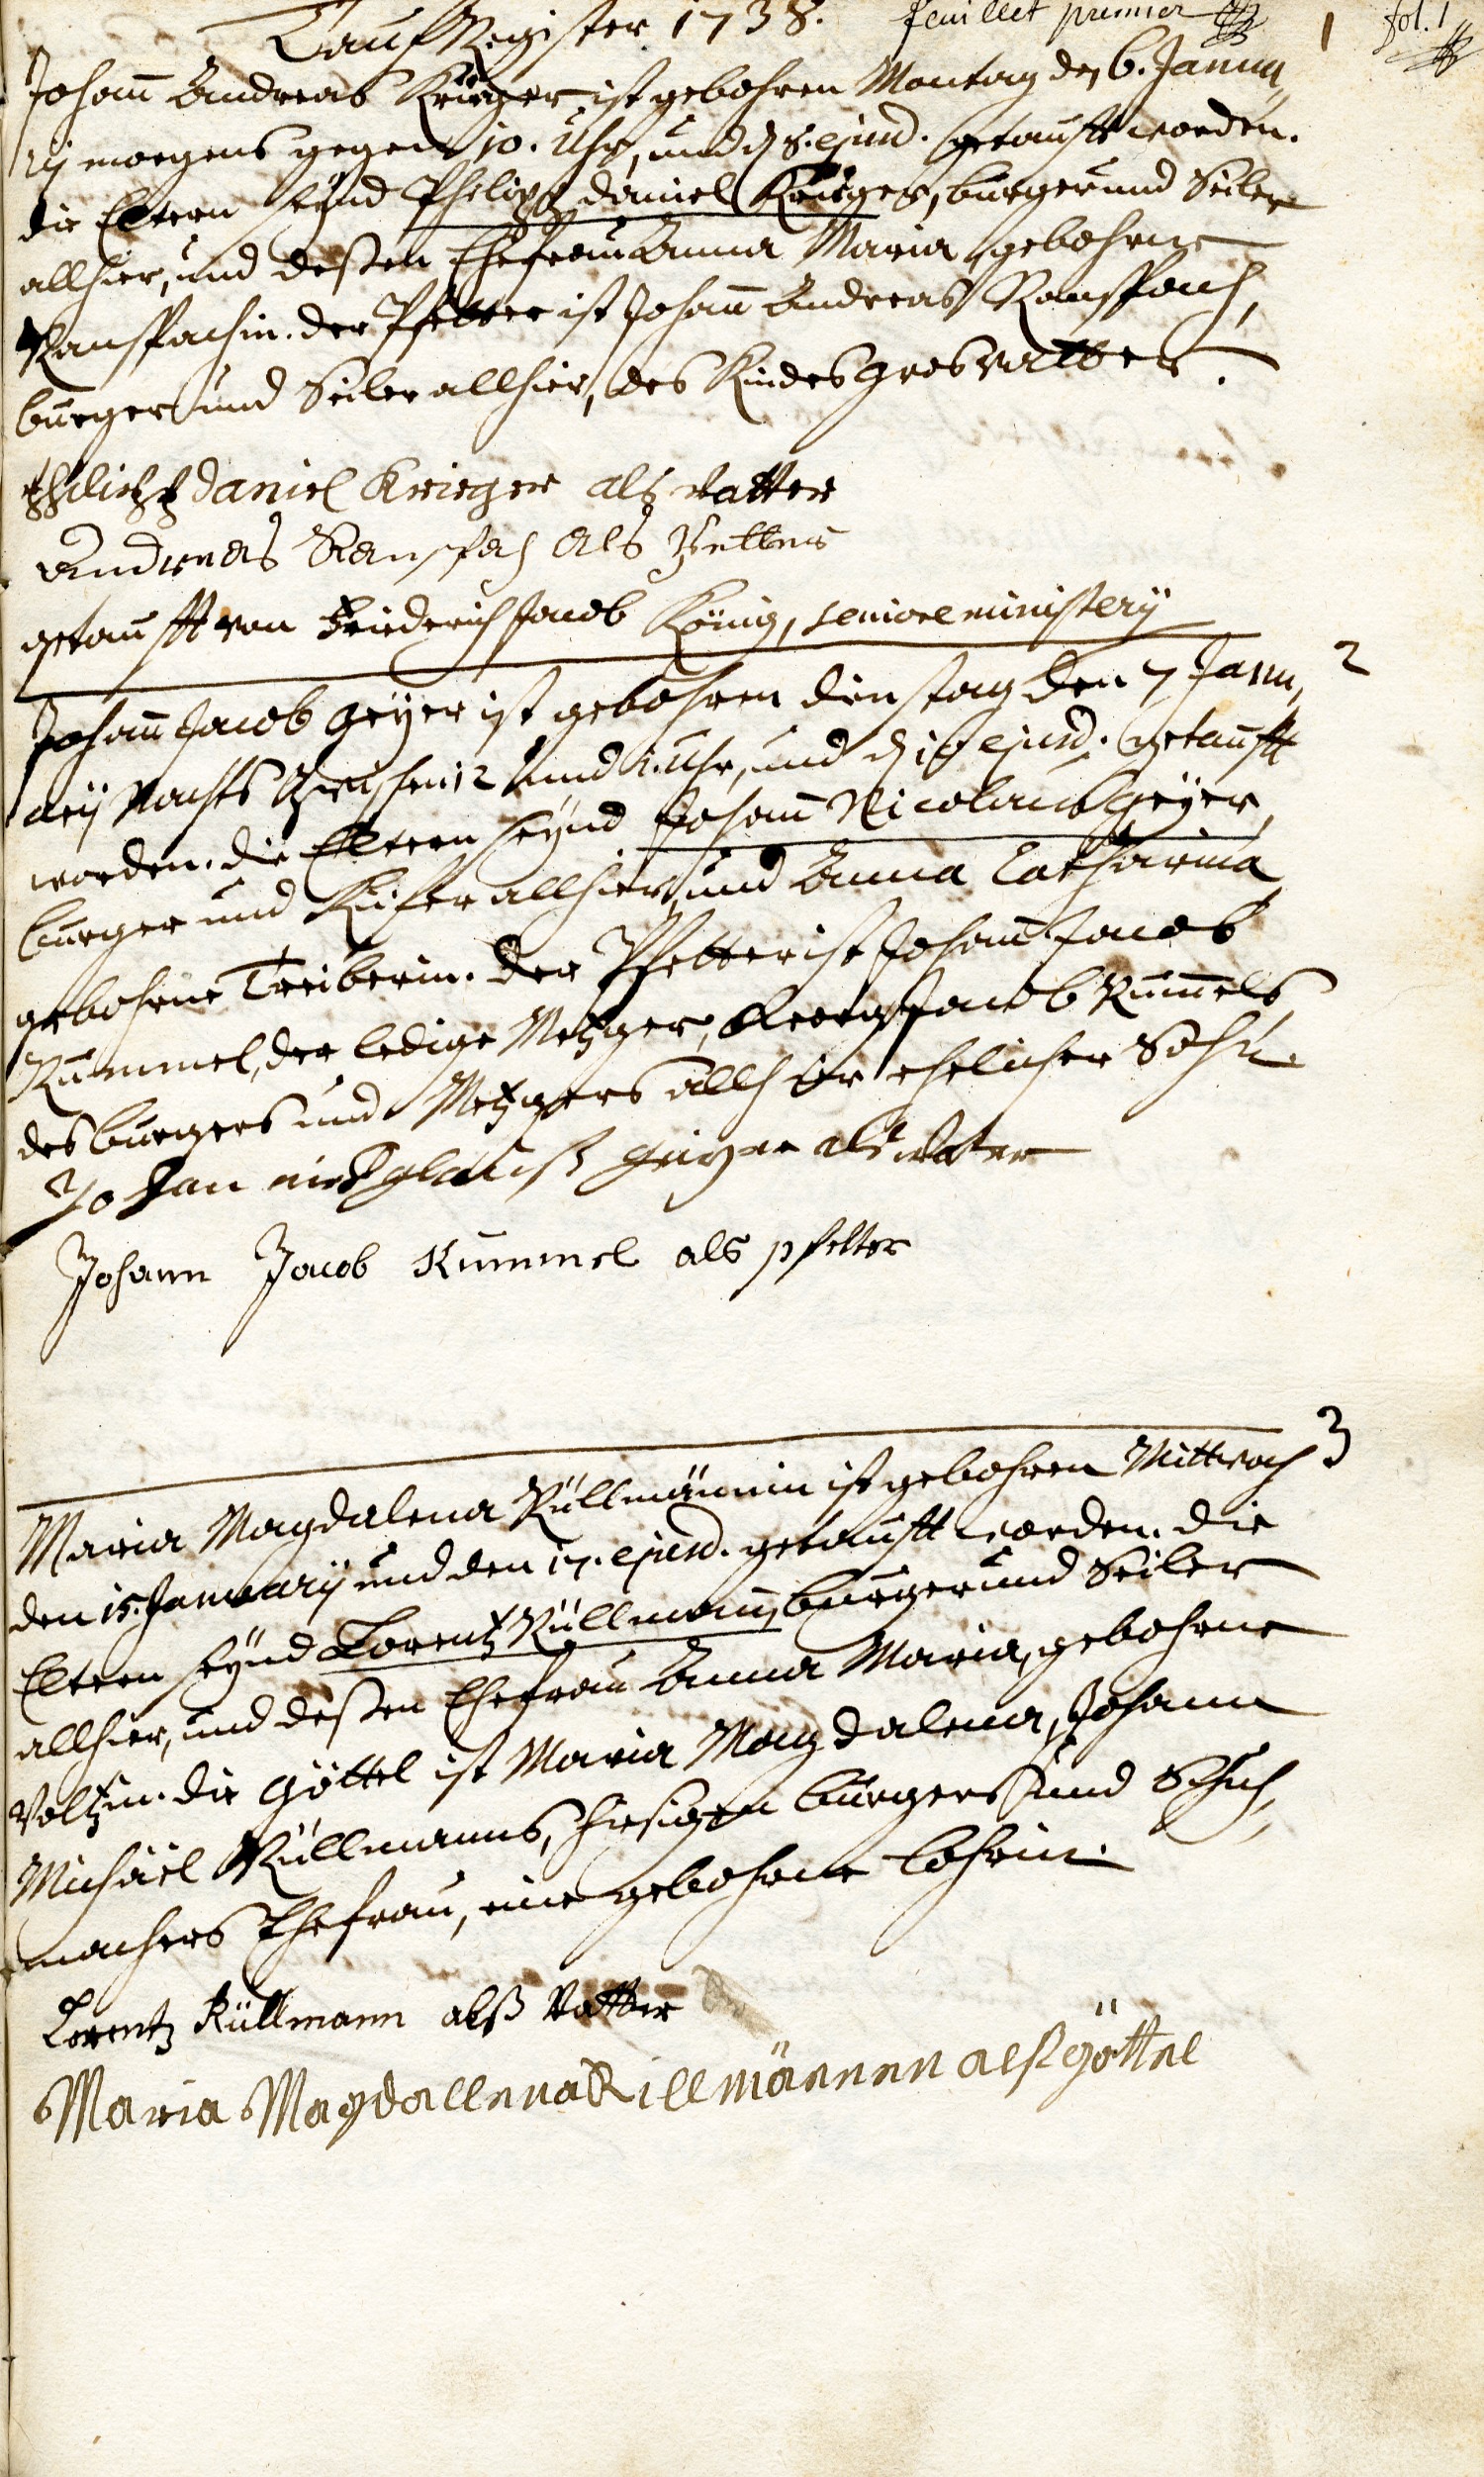 Tauf Register 1738. feuillet premier 1 fol. 1
Johann Andreas Krieger ist gebohren Montag den 6. Janua,
rij morgens gegen 10. Uhr, und d. 8. ejusd. getaufft worden.
die Eltern seynd Philipp Daniel Krieger, burger und Seiler
allhier, und deßen Ehefrau Anna Maria, gebohrne
Ranspachin. der Pfetter ist Johann Andreas Ranspach,
burger und Seiler allhier, des Kindes Grosvatter.
Philipp Daniel Krieger als vatter
Andreas Ranspach als Pfetter
getaufft von Friederich Jacob König, seniore ministerij
2
Johann Jacob Geyer ist gebohren dienstag den 7 Janu,
arij Nachts zwischen 12 und 1. Uhr, und d. 10 ejusd. getaufft
worden. die Eltern seynd Johann Nicolaus Geyer,
burger und Kiefer allhier, und Anna Catharina
gebohrne Treiberin. der Pfetter ist Johann Jacob
Kummel, der ledige Metzger, Georg Jacob Kummels
des burgers und Metzgers allhier ehelicher Sohn.
Johan geiger als vater
Johann Jacob Kummel als pfetter
3
Maria Magdalena Küllmännin ist gebohren Mittwoch
den 15. January und den 17. ejusd. getaufft worden. die
Eltern seynd Lorentz Küllmann, burger und Seiler
allhier, und deßen Ehefrau Anna Maria, gebohrne
Voltzin. die Göttel ist Maria Magdalena, Johann
Michäel Küllmanns, hiesigen burgers und Schuh,
machers Ehefrau, eine gebohrne Lohrin.
Lorentz Küllmann alß Vatter
Maria Magdallena Killmännen alß göttel